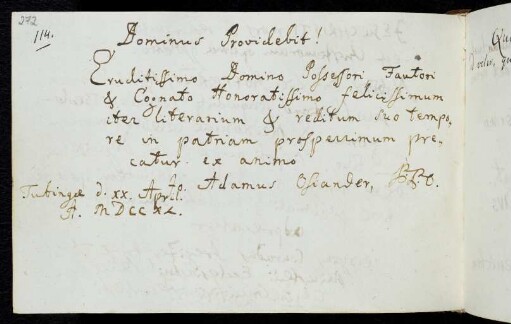 272
114.
Dominus Providebit!
Eruditissimo Domino Possessori Fautori
& Cognato Honoratissimo felicissimum
iter literarium & reditum suo tempo,
re in patriam prosperrimum pre,
catur ex animo
Jo. Adamus Osiander,
Tubingae d. XX. April.
A. MDCCXL.